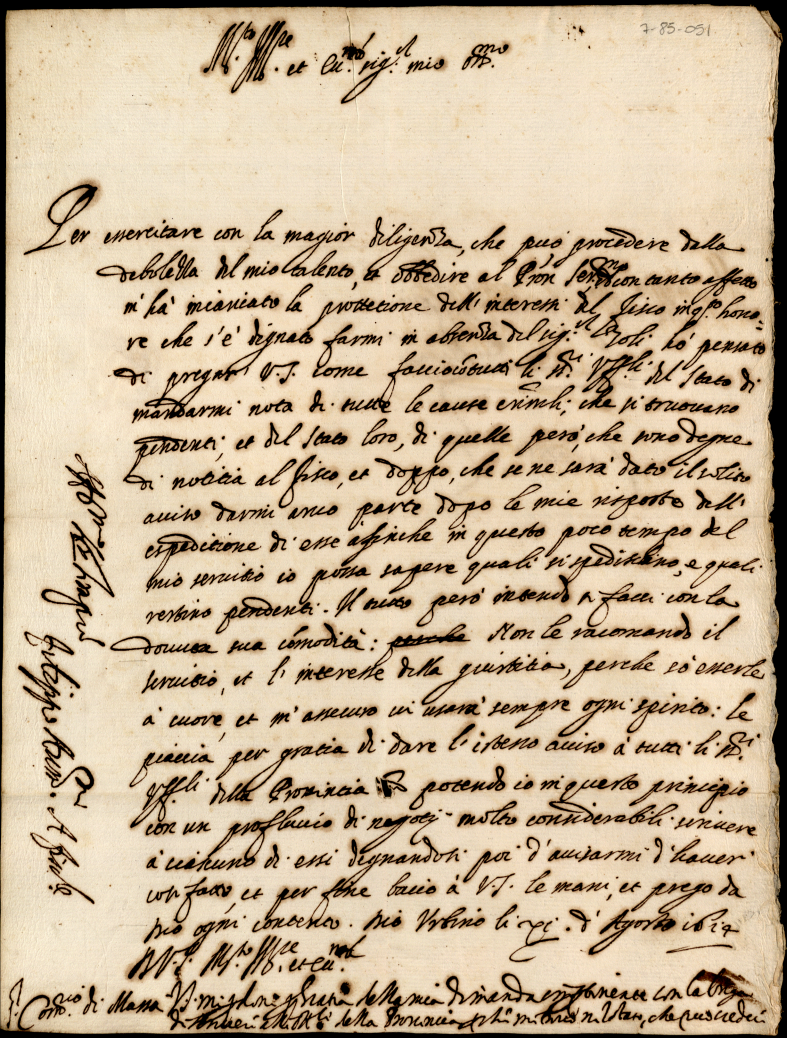 7-85-051
M.to Ill.re et Ecc.mo sig.r mio oss.mo
Per essercitare con la magior diligenza, che può procedere dalla
debolezza del mio talento, et obbedire al Pron Ser.mo con tanto affetto
m'hà incaricato la protettione dell'interessi del fisco in q.to hono=
re che s'è dignato farmi in absenza del sig.r Zoli hò pensato
di pregar V.S. come faccio tutti li SS.ri Uff.li del Stato di
mandarmi nota di tutte le cause crim.li, che si truovano
pendenti, et del Stato loro, di quelle però, che sono degne
di notitia al fisco, et doppo, che se ne sarà dato il solito
aviso darmi anco parte dopo le mie risposte dell'
espeditione di esse affinche in questo poco tempo del
mio servitio io possa sapere quali si spediscano, e quali
restino pendenti. Il tutto però intendo si facci con la
dovuta sua com̃odità: perche Non le racomando il
servitio, et l'interesse della giustitia, perche sò esserle
à cuore, et m'assicuro vi usarà sempre ogni spirito: le
piaccia per gratia di dare l'istesso aviso à tutti li SS.ri
Uff.li della Provincia potendo io in questo principio
con un profluvio di negotij molto considerabili scrivere
à ciascuno di essi degnandosi poi d'avisarmi d'haver
cosi fatto, et per fine bacio à V.S. le mani, et prego da
Dio ogni contento. Di Urbino li xj. d'Agosto 1614
Di V.S. M.to Ill.re et Ecc.ma
Aff.mo
Filippo A fisc.le
S.r Com.rio di Massa
della Provincia